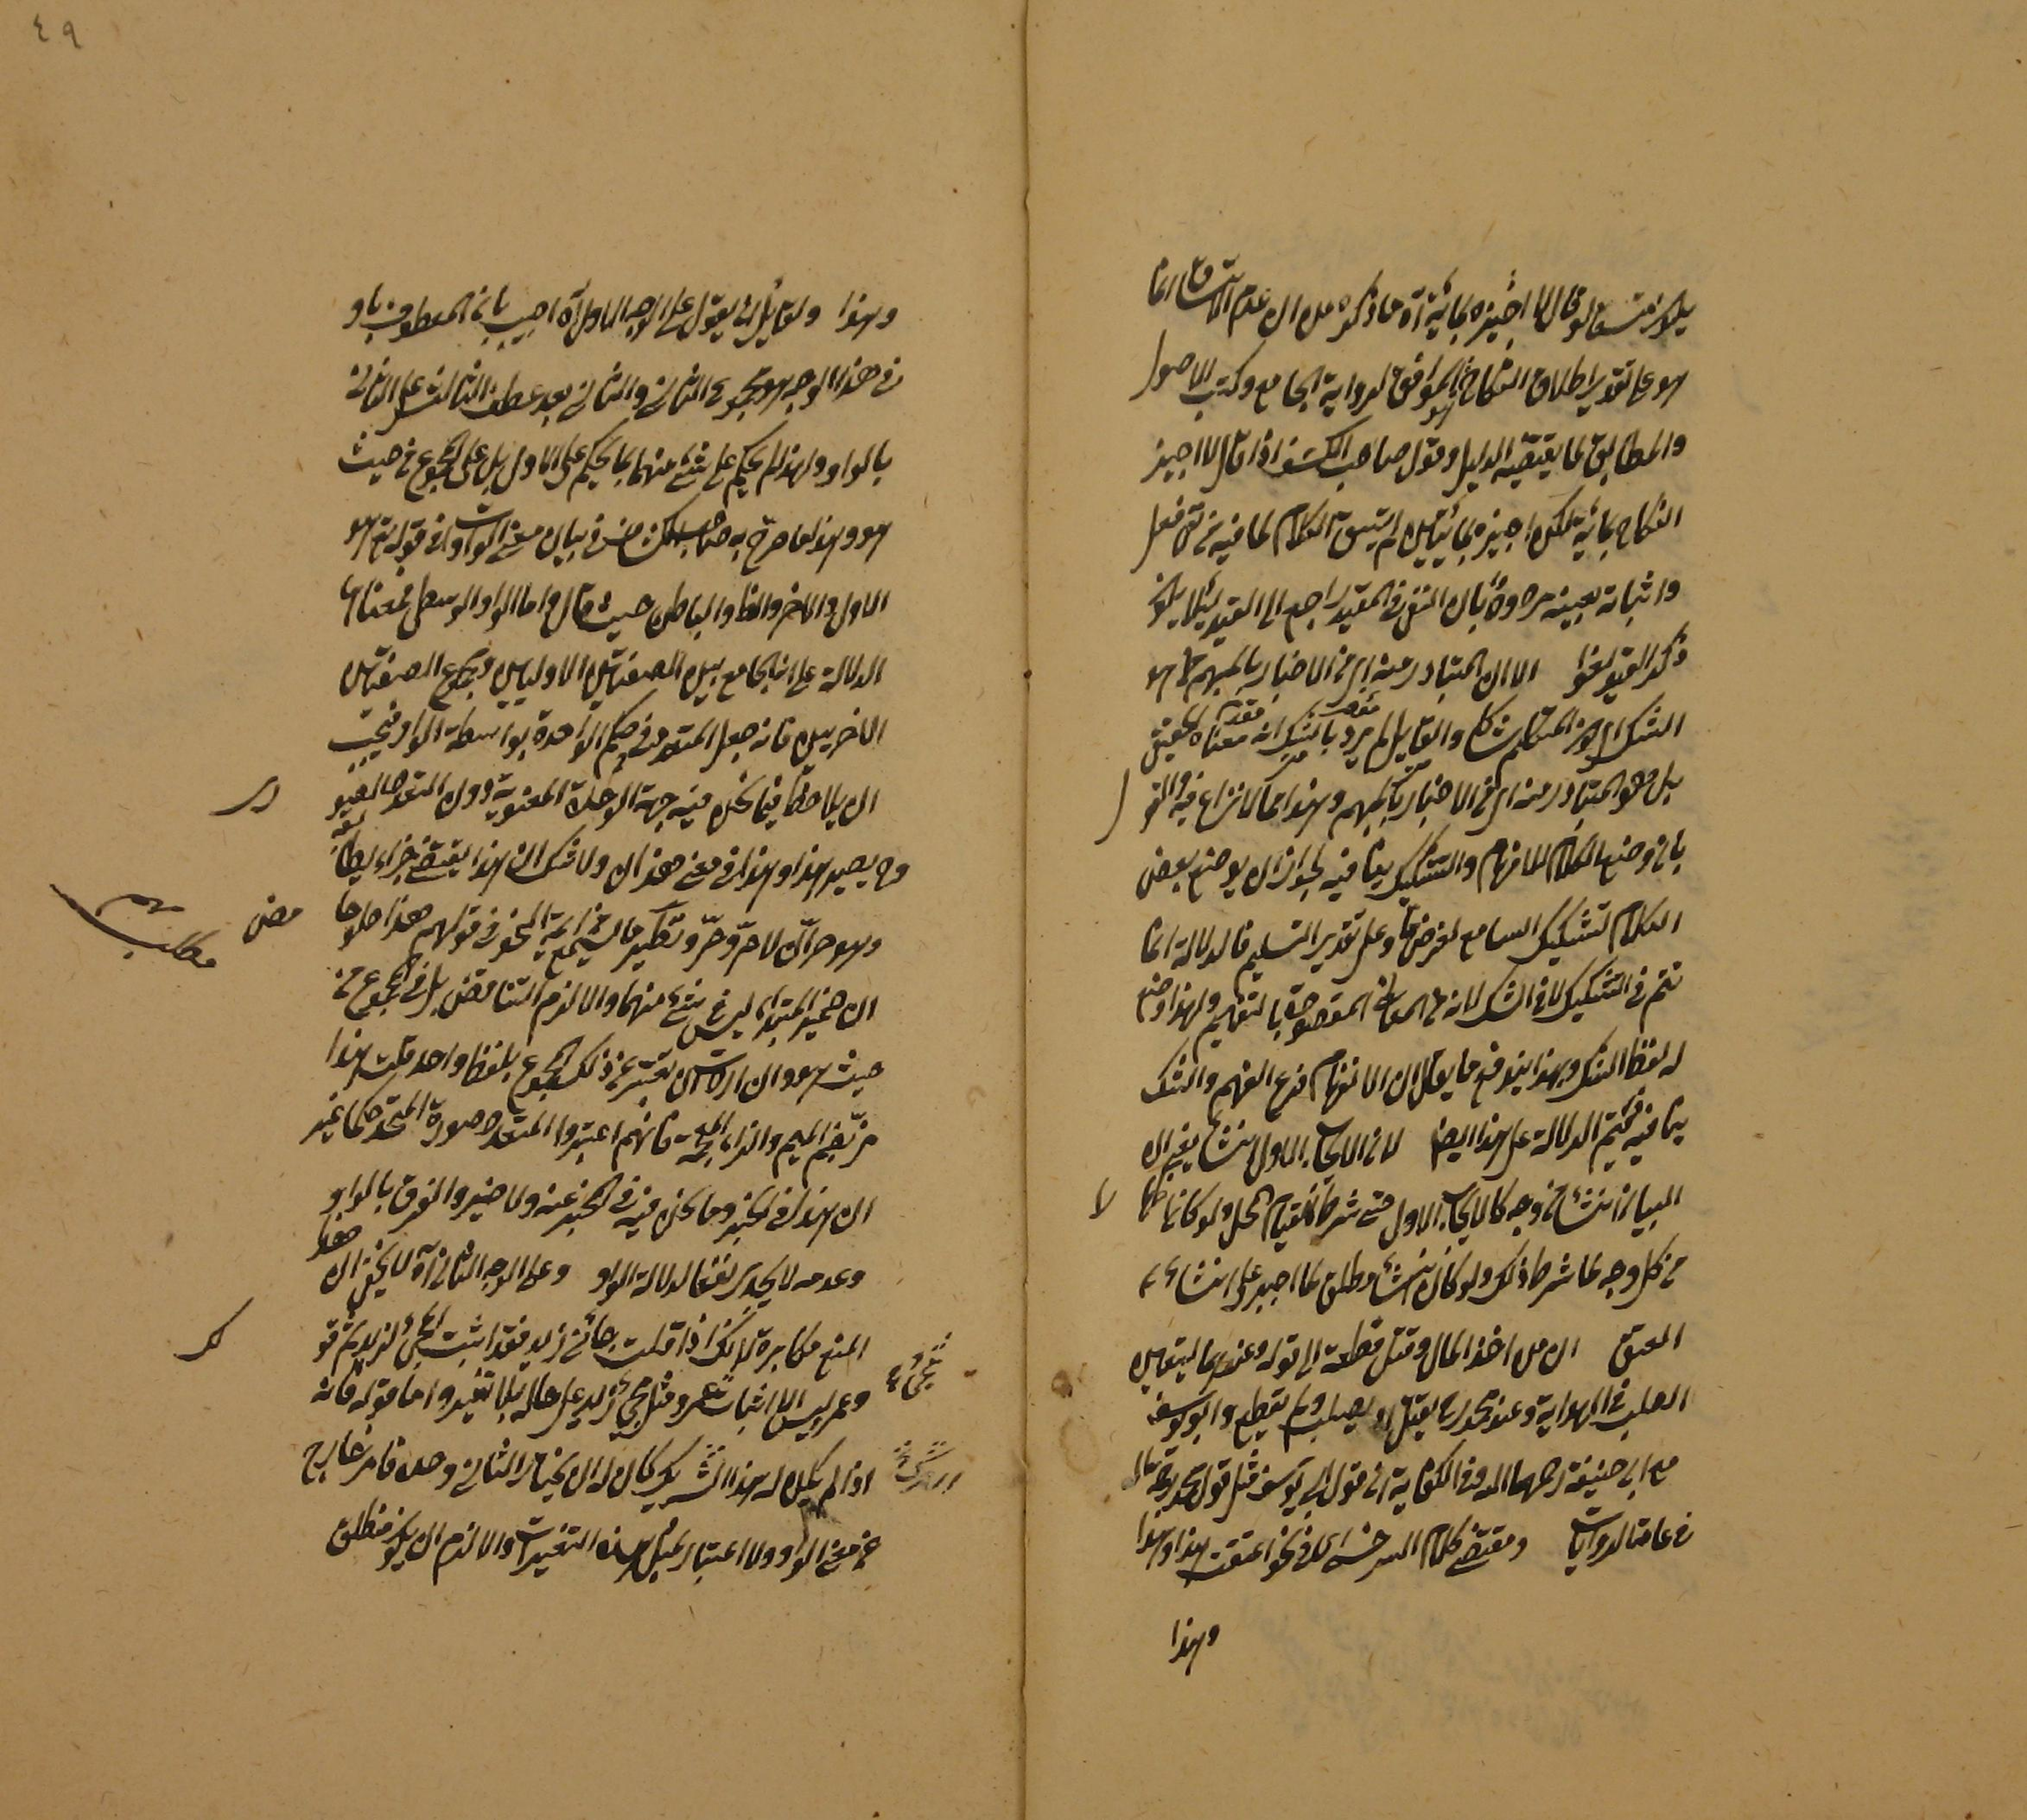 يكون فسخا لو قال لا اجيزه بمائة آه ما ذكره من ان عدم الاتساق انما
هو على تقدير اطلاق النكاح هو الموافق لرواية الجامع وكتب الاصول
والمطابق لما يقتضيه الدليل وقول صاحب الكشف اذا قال لا اجيز
النكاح بمائة لكن اجيزه بمائتين لم يتسق الكلام لما فيه من نفي فعل
واثباته بعينه مردود بان النفي في المقيد راجع الى القيد لئلا يكون
ذكر القيد لغوا الا ان المتبادر منه اي من الاخبار بالمبهم هو
الشك اي كون المتكلم شاكا والقائل لم يرد بالشك انه معناه الحقيقي
بل هو المتبادر منه اي من الاخبار بالمبهم وهذا مما لا نزاع فيه والقول
بان وضع الكلام للافهام والتشكيك ينافيه لجواز ان يوضع بعض
الكلام لتشكيك السامع لغرض ما وعلى تقدير التسليم فالدلالة انما
تتم في التشكيك لا في الشك لانه من المعاني المقصودة بالتفهيم ولهذا وضع
له لفظ الشك وبهذا يندفع ما يقال ان الانفهام فرع الفهم والشك
ينافيه فتتم الدلالة على هذا ايضا لان الايجاب الاول انشاء يعني ان
البيان انشاء من وجه كالايجاب الاول حتى شرط لقيام المحل ولو كان اظهارا
من كل وجه لما شرط ذلك ولو كان انشاء مطلق لما اجبر على انشاء
المعتق ان من اخذ المال وقتل قطعه الى قوله وعندهما يتعين
الصلب في الهداية وعند محمد رح يقتل او يصلب ولم يقطع وابو يوسف
مع ابي حنيفة رحمهما الله وفي الكفاية ان قول ابي يوسف مثل قول محمد رحمه تعالى
في عامة الروايات ومقتضى كلام السرخسي ان في نحو اعتقت هذا وهذا
وهذا
٤٩
وهذا ولقائل ان يقول على الوجه الاول آه اجيب بان المعطوف باو
في هذا الوجه هو مجموع الثاني والثالث بعد عطف الثالث على الثاني
بالواو ولهذا لم يحكم على شئ منهما بما يحكم على الاول بل على المجموع من حيث
هو وهذا كما صرح به صاحب الكشاف في بيان معنى الواوات في قوله تعالى هو
الاول والآخر والظاهر والباطن حيث قال واما الواو الوسطى فمعناها
الدلالة على انه الجامع بين الصفتين الاوليين ومجموع الصفتين
الاخريين فانه جعل المتعدد في حكم الواحد بواسطة الواو فيجب
ان يلاحظ فيما نحن فيه جهة الوحدة المعنوية دون التعدد
وح يصير هذا وهذا في معنى هذان ولا شك ان هذا يقتضي خبرا يطابقه
وهو حران لا حر وحر ونظيره ما قال ائمة النحو في قولهم هذا حلو حامض
ان خبر المبتدأ ليس شئ منهما والا لزم التناقض بل في المجموع من
حيث هو وان اردت ان تعبر عن ذلك المجموع بلفظ واحد قلت هذا
مز بضم الميم والزاء المعجمة فانهم اعتبروا المتعدد صورة المتحد حكما غير
ان هذا في الخبر وما نحن فيه في المخبر عنه ولا ضير والفرق بالواو
وعدمه لا يجدي نفعا لدلالة الواو وعلى الوجه الثاني آه لا يخفى ان هذا
المنع مكابرة لانك اذا قلت جاءني زيد فقد اثبت المجئ لزيد ثم قولك
وعمر ليس الا اثبات مجئ عمرو ومجئ زيد على حاله بلا تغيير واما قوله فانه
اذا لم يكن له هذا التشريك كان له ان يختار الثاني وحده فامر خارج
عن معنى الواو ولا اعتبار بمثل هذه التغييرات والا لزم ان يكون مطلق
مطلب مهم